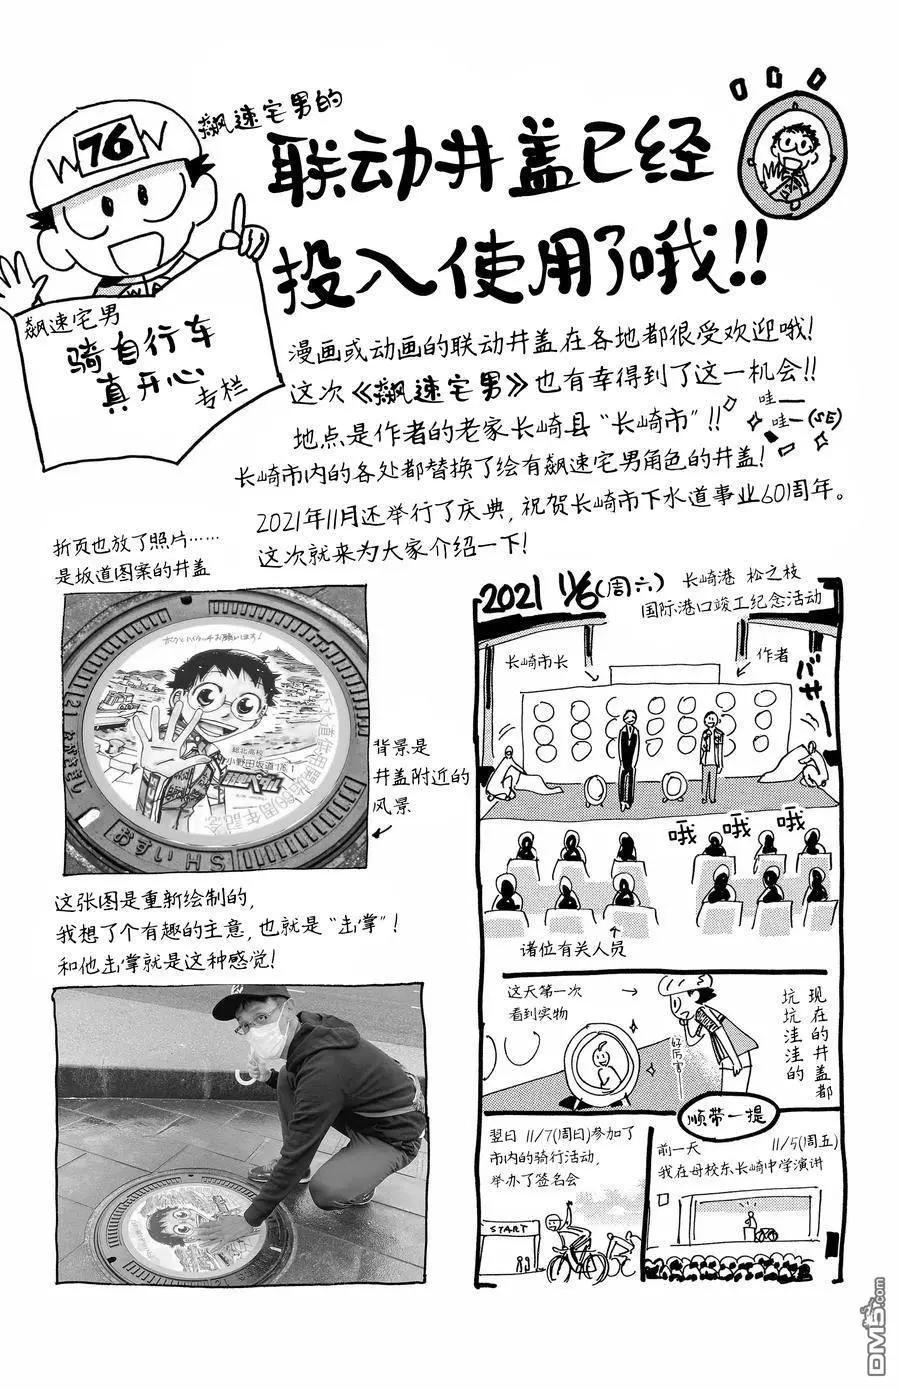 飙速宅男的
76
联动井盖已经
投入使用了哦!!
飙速宅男
骑自行车
真开心
专栏
漫画或动画的联动井盖在各地都很受欢迎哦!
这次《飙速宅男》也有幸得到了这一机会!!
地点是作者的老家长崎县“长崎市”!!
哇——
哇—(SE)
长崎市内的各处都替换了绘有飙速宅男角色的井盖!
2021年11月还举行了庆典,祝贺长崎市下水道事业601周年。
这次就来为大家介绍一下!
折页也放了照片……
是坂道图案的井盖
総北高校
小野田坂道
おすい HS
背景是
井盖附近的
风景
这张图是重新绘制的,
我想了个有趣的主意,也就是“击掌”!
和他击掌就是这种感觉!
2021 11/6(周六)
长崎港 松之枝
国际港口竣工纪念活动
长崎市长
作者
バサッ
哦 哦 哦
诸位有关人员
这天第一次
看到实物
好厉害
现在的井盖都
坑坑洼洼的
顺带一提
翌日 11/7(周日)参加了
市内的骑行活动,
举办了签名会
START
前一天 11/5(周五)
我在母校东长崎中学演讲
DM5.com